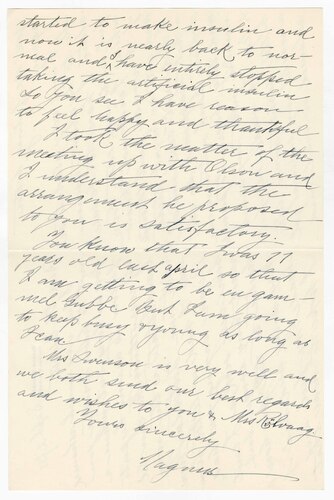 started to make insulin and
now it is nearly back to nor-
mal and I have entirely stopped
taking the artificial insulin
So you see I have reason
to feel happy and thankful
I took the matter of the
meeting up with Olson and
I understand that the
arrangement he proposed
to you is satisfactory.
You know that I was 77
years old last april so that
I am getting to be en gam-
mel Gubbe But I am going
to keep busy & young as long as
I can
Mrs Swenson is very well and
we both send our best regards
and wishes to you & Mrs Rolvaag
Yours sincerely
Magnus